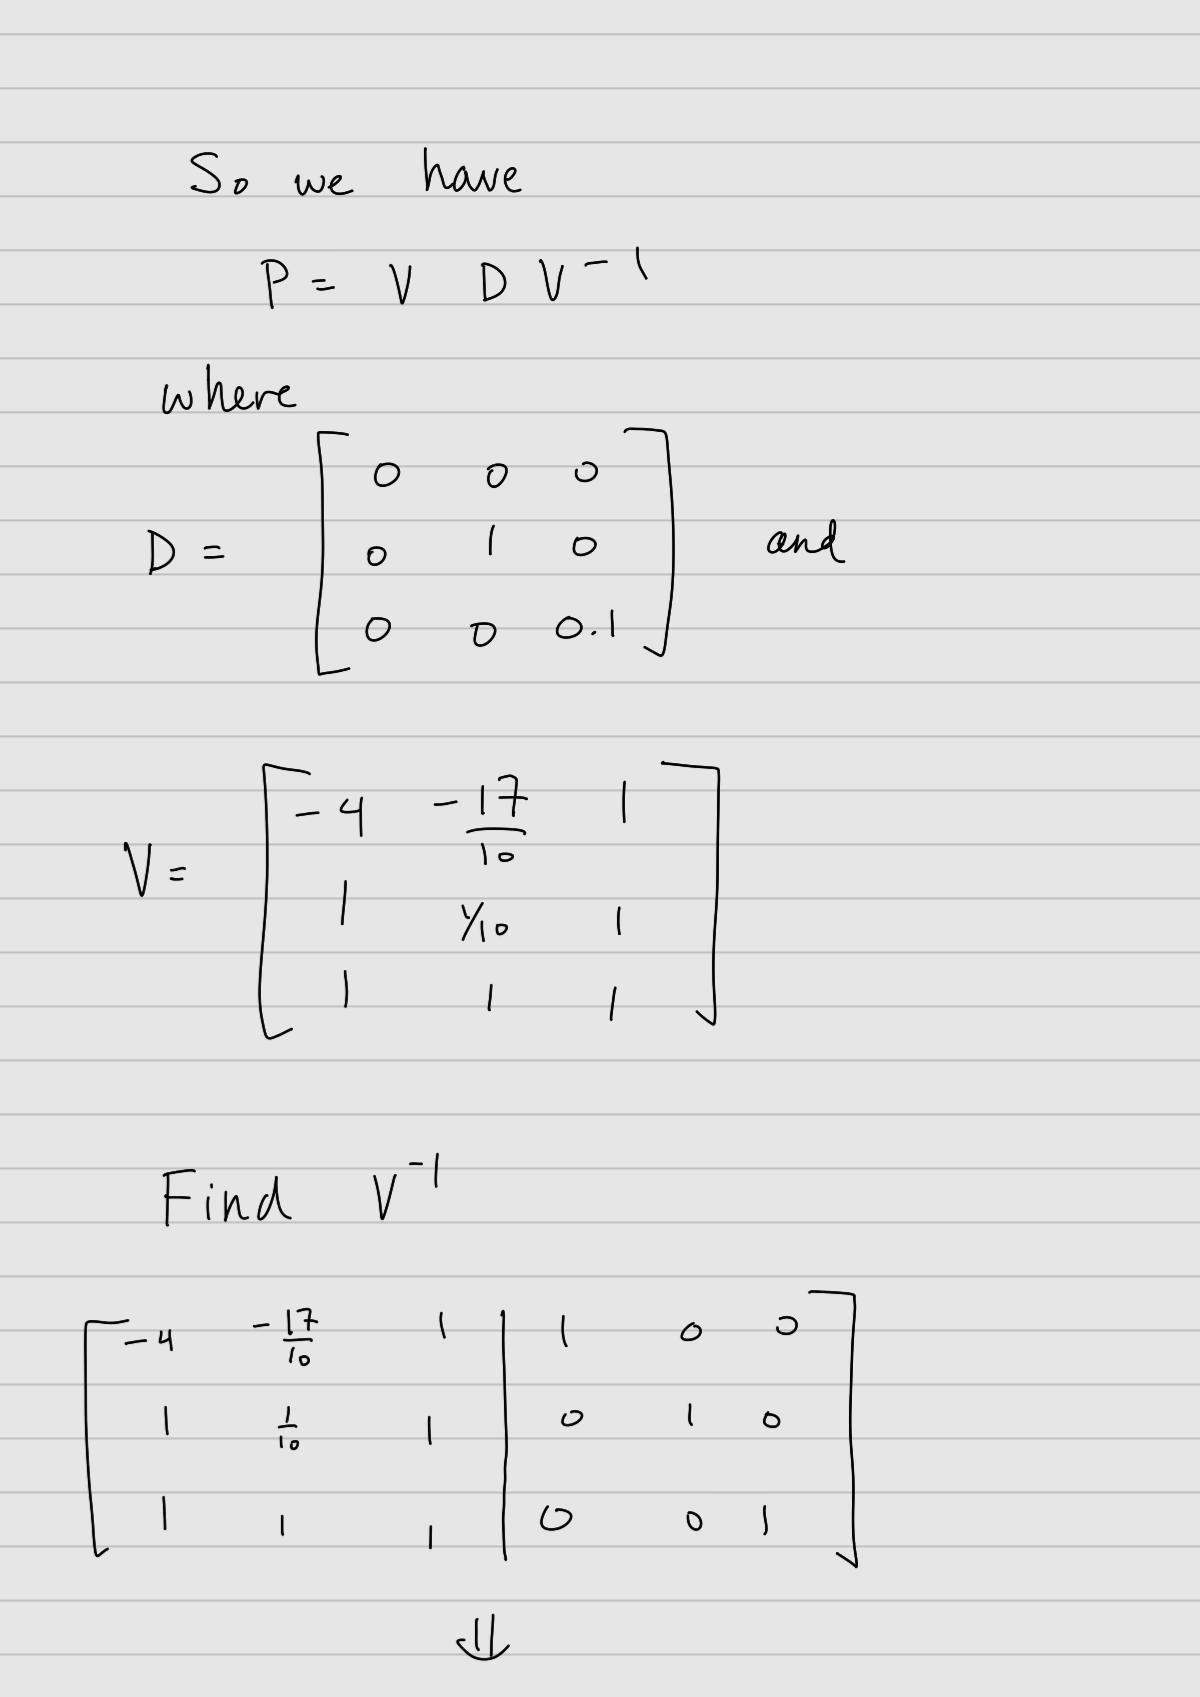 So we have
P = V D V^-1
where
D = [ 0 0 0
0 1 0
0 0 0.1 ] and
V = [ -4 -17/10 1
1 1/10 1
1 1 1 ]
Find V^-1
[ -4 -17/10 1 | 1 0 0
1 1/10 1 | 0 1 0
1 1 1 | 0 0 1 ]
⇓